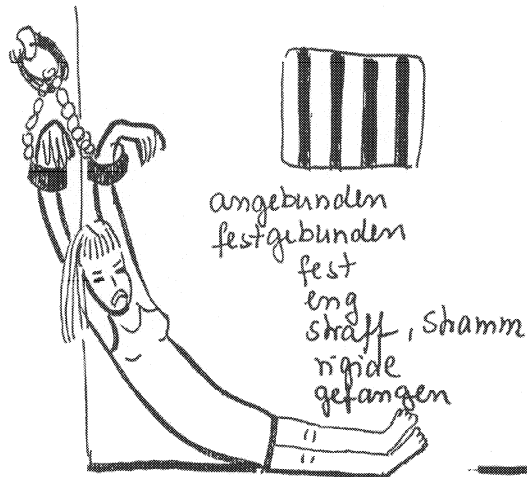 angebunden
festgebunden
fest
eng
straff, stramm
rigide
gefangen